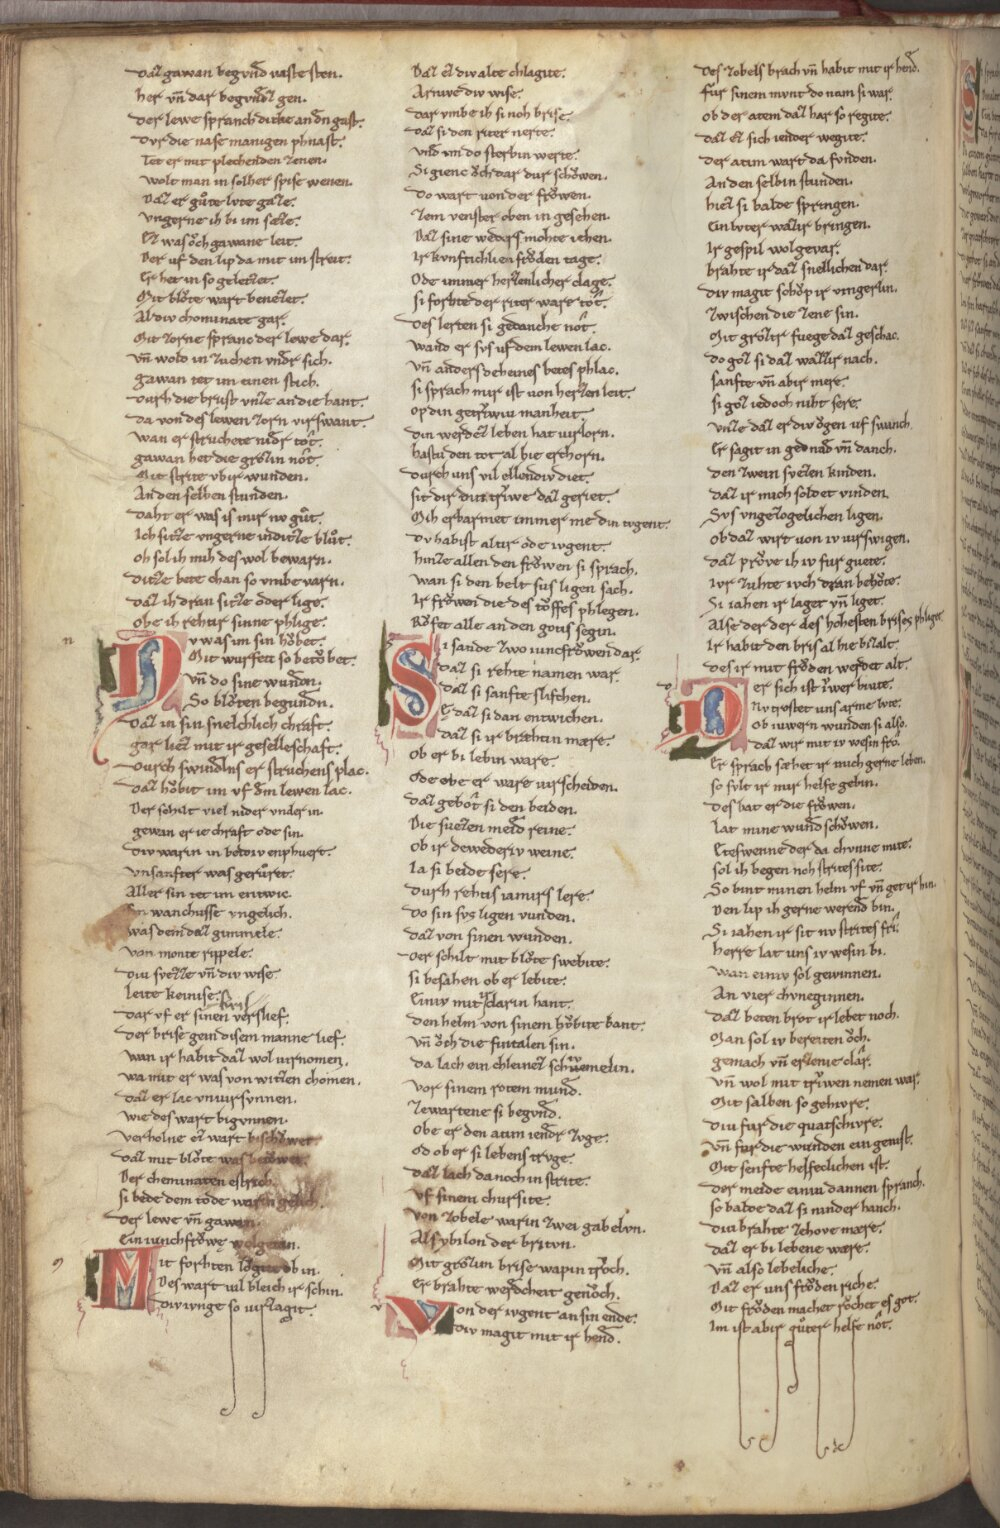 daz gawan begvnd vaste sten.
her vn̄ dar begvndz gen.
Der lewe spranch dicke an dn gast.
Dvr die nase manigen phnast.
Tet er mit plechenden zenen.
wolt man in solher spise wenen.
Daz er gůte lvte gaze.
vngerne ih bi im sæze.
Ez was ŏch gawane leit.
Der vf den lip da mit im streit.
Er het in so geletzet.
Mit blŏte wart benetzet.
Al div chominate gar.
Mit zorne spranc der lewe dar.
vn̄ wold in zuchen vndr sich.
gawan tet im einen stich.
Durh die brust vnze an die hant.
da von des lewen zorn virswant.
wan er struchete nidr tot.
gawan het die grŏzin nŏt.
Mit strite vbir wunden.
An den selben stunden.
Daht er was is mir nv gůt.
Ich sitze vngerne in ditze blůt.
oh sol ih mih des wol bewarn.
Ditze bete chan so vmbe varn.
Daz ih dran sitze oder lige.
obe ih rehtir sinne phlige.
n
Nv was im sin hŏbet.
Mit wurfen so betŏbet.
vn̄ do sine wundn.
So blŏten begundn.
Daz in sin snelchlich chraft.
gar liez mit ir geselleschaft.
Durch swindlns er struchens plac.
Daz hŏbit im vf dm lewen lac.
Der schilt viel nider vnder in.
gewan er ie chraft ode sin.
Div warin in bediv enphuert.
vnsanfter was gerůret.
Aller sin tet im entwic.
Sin wanchusse vngelich.
was dem daz gimmele.
von monte rippele.
Div svezze vn̄ div wise.
leite keinise.
pril
Dar vf er sinen verslief.
Der brise gein disem manne lief.
wan ir habit daz wol virnomen.
wa mit er was von witzen chomen.
Daz er lac vnvirsvnnen.
wie des wart bigvnnen.
verholne ez wart bischŏwet
Daz mit blŏte was betŏwet.
Der cheminaten estrich.
Si bede dem tode warin gelich.
Der lewe vn̄ gawan.
Ein iunchfrŏwe wolgetan.
Mit forhten lŏgete ob in.
Des wart vil bleich ir schin.
Div ivnge so virzagit.
Daz ez div alte chlagite.
Arnive div wise.
Dar vmbe ih si noh brise.
Daz si den riter nerte.
vnd im do sterbin werte.
Si gienc ŏch dar dur schŏwen.
Do wart von der frŏwen.
zem venster oben in gesehen.
Daz sine weders mohte iehen.
Ir kvnftichlien frŏden tage.
Ode immer herzenlicher clage.
Si forhte der riter ware tot.
Des lerten si gedanche nŏt.
wand er svs vf dem lewen lac.
vn̄ anders deheines betes phlac.
Si sprach mir ist von herzen leit.
op din getrwiv manheit.
Din werdez leben hat virlorn.
hastu den tot al hie erchorn.
Durch uns vil ellendiv diet.
Sit dir din trwe daz geriet.
Mih erbarmet immer me din tvgent.
Dv habist altir ode ivgent.
hinze allen den frŏwen si sprach.
wan si den helt sus ligen sach.
Ir frŏwen die des tŏffes phlegen.
Rŏfet alle an den gotis segin.
Si sande zwo iuncfrŏwen dar.
Daz si rehte namen war.
Daz si sanfte slifchen.
E daz si dan entwichen.
Daz si ir bræhtin mære.
ob er bi lebin ware.
Ode obe er ware virscheiden.
Daz gebŏt si den beiden.
Die suezen meid reine.
ob ir dewederiv weine.
Ia si beide sere.
Durh rehtis iamirs lere.
Do sin svs ligen vunden.
Daz von sinen wunden.
Der schilt mit blŏte swebite.
Si besahen ob er lebite.
Einiv mit ir clarin hant.
Den helm von sinem hŏbite bant.
vn̄ ŏch die fintalen sin.
Da lach ein chleinez schwemelin.
vor sinem rotem mund.
zewartene si begvnd.
obe er den atum iendr zvge.
od ob er si lebens trvge.
Daz lach da noch in strite.
vf sinem chursite.
von zobele warin zwei gabelvn.
Als ybilon der britvn.
Mit grŏzim brise wapin trŏch.
Er brahte werdcheit genŏch.
v
Von der ivgent an sin ende.
Div magit mit ir hend.
Des zobels brach vn̄ habit mit ir hend.
fur sinem mvnt do nam si war.
ob der atem daz har so regite.
Daz ez sich iender wegite.
Der atim wart da fvnden.
An den selbin stunden.
hiez si balde springen.
Ein lvter wazir bringen.
Ir gespil wolgevar.
brahte ir daz snellichen dar.
Div magit schŏp ir vingerlin.
zwischen die zene sin.
Mit grŏzir fuege daz geschac.
do gŏz si daz wazzir nach.
Sanfte vn̄ abir mere.
Si gŏz iedoch niht sere.
vnze daz er div ŏgen uf swanch.
Er sagit in gednad vn̄ danch.
Den zwein svezen kinden.
Daz ir mich soldet vinden.
Svs vngezogelichen ligen.
ob daz wirt von iv virswigen.
Daz prŏve ih iv fur guete.
ivr zuhte ivch dran behŏte.
Si iahen ir laget vn̄ liget.
Alse der der des hohesten brises phliget.
Ir habit den bris al hie bizalt.
Des ir mit frŏden werdet alt.
Der sich ist iwer hiute.
Nv trostet uns arme lvte.
ob iuwern wunden si also.
Daz wir mit iv wesin frŏ.
Er sprach sæhet ir mich gerne leben.
so svlt ir mir helfe gebin.
Des bat er die frŏwen.
lat mine wund schŏwen.
Eteswenne der da chvnne mite.
sol ih begen noh strites site.
So bint minen helm vf vn̄ get ir hin.
Den lip ih gerne werend bin.
Si iahen ir sit nv strites frî.
herre lat uns iv wesin bi.
wan einiv sol gewinnen.
An vier chvneginnen.
Daz beten brot ir lebet noch.
Man sol iv bereiten ŏch.
gemach vn̄ erzenie clâr.
vn̄ wol mit trwen nemen war.
Mit salben so gehivre.
Div fur die quatschivre.
vn̄ fur die wunden ein genist.
Mit senfte helfeclichen ist.
Der meide einiv dannen spranch.
so balde daz si ninder hanch.
Div brahte zehove mære.
Daz er bi lebene wære.
vn̄ also lebeliche.
Daz er uns frŏden riche.
Mit frŏden machet rŏchet es got.
Im ist abir gůter helfe nŏt.